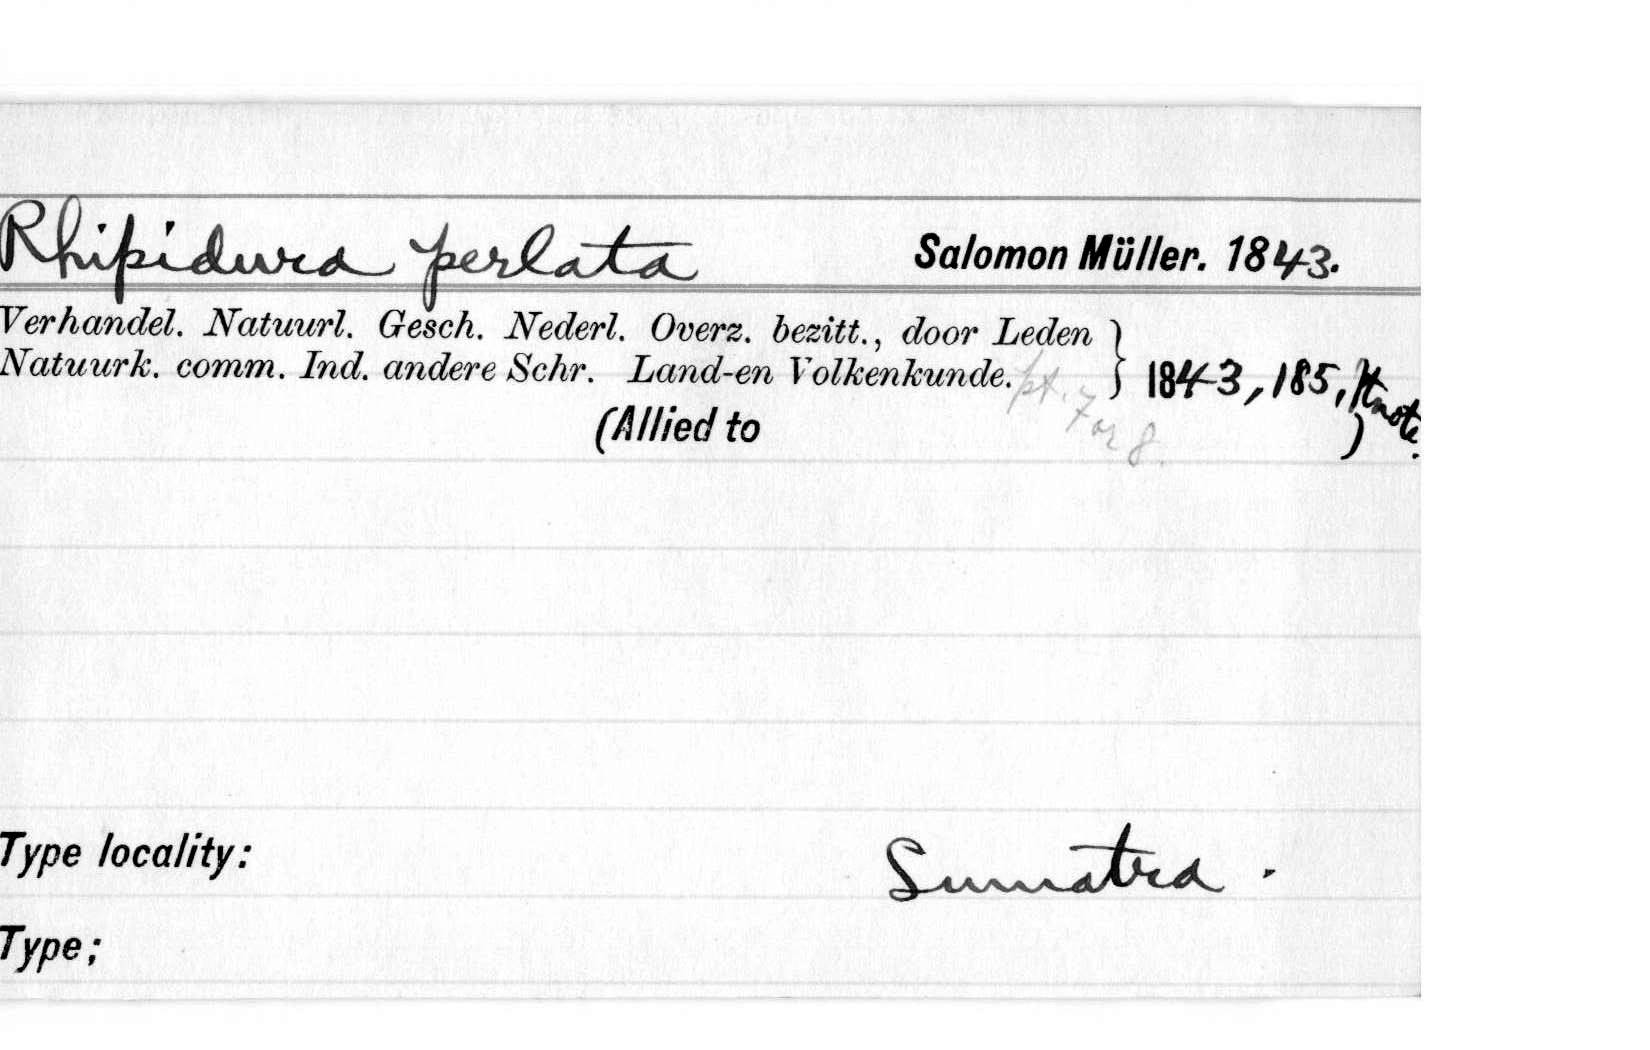 Rhipidura perlata Salomon Müller. 1843.
Verhandel. Natuurl. Gesch. Nederl. Overz. bezitt., door Leden }
Natuurk. comm. Ind. andere Schr. Land-en Volkenkunde. pt. 7 or 8. } 1843, 185, ftnote.
(Allied to )
Type locality: Sumatra.
Type;